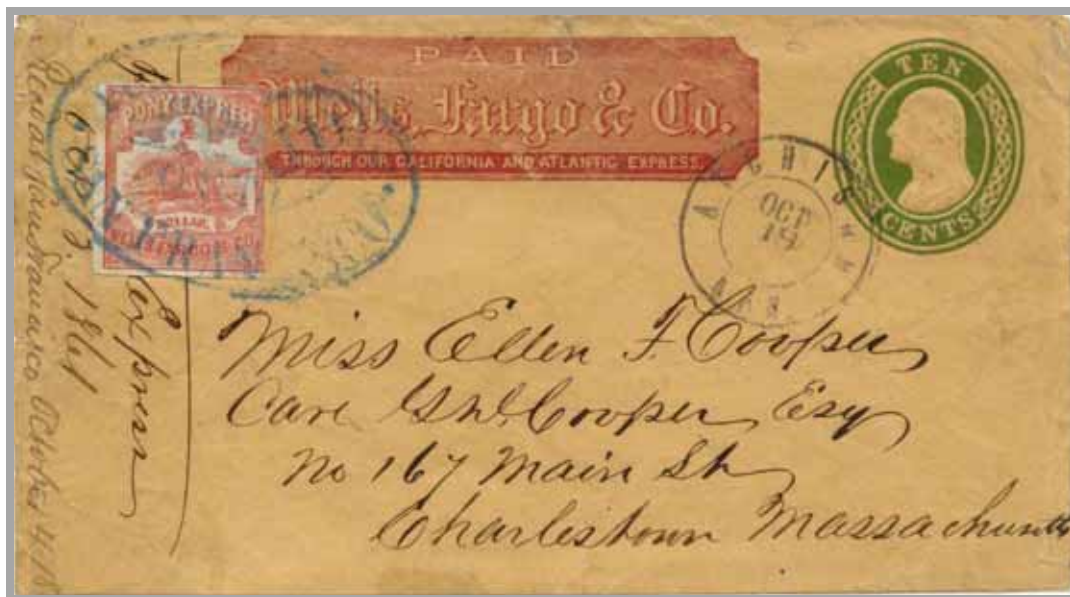 PAID
Wells, Fargo & Co.
THROUGH OUR CALIFORNIA AND ATLANTIC EXPRESS.
TEN
CENTS
PONY EXPRESS
DOLLAR
WELLS FARGO & CO
ATCHISON
OCT
19
KAN
Miss Ellen F. Cooper
Care Cooper Esq
No 167 Main St
Charlestown Massachusetts
Express
1861
San Francisco October